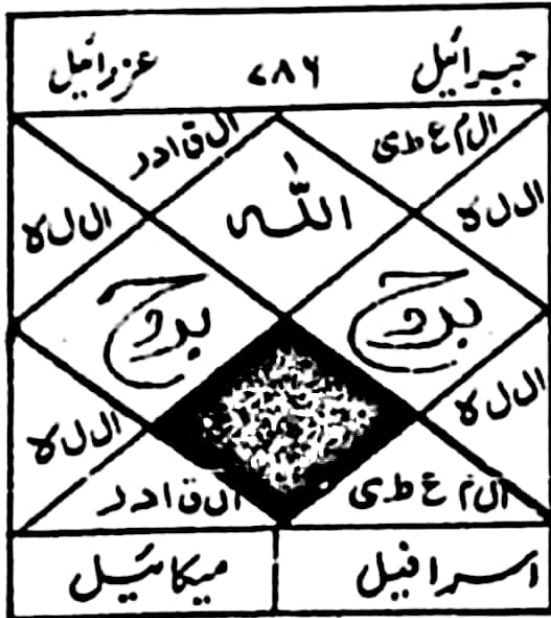 جبرائیل ۷۸۶ عزرائیل
ال م ع ط ی ال ق ا د ر
اللہ
ال ل ہ ال ل ہ
بدوح بدوح
ال ل ہ ال ل ہ
ال م ع ط ی ال ق ا د ر
اسرافیل میکائیل